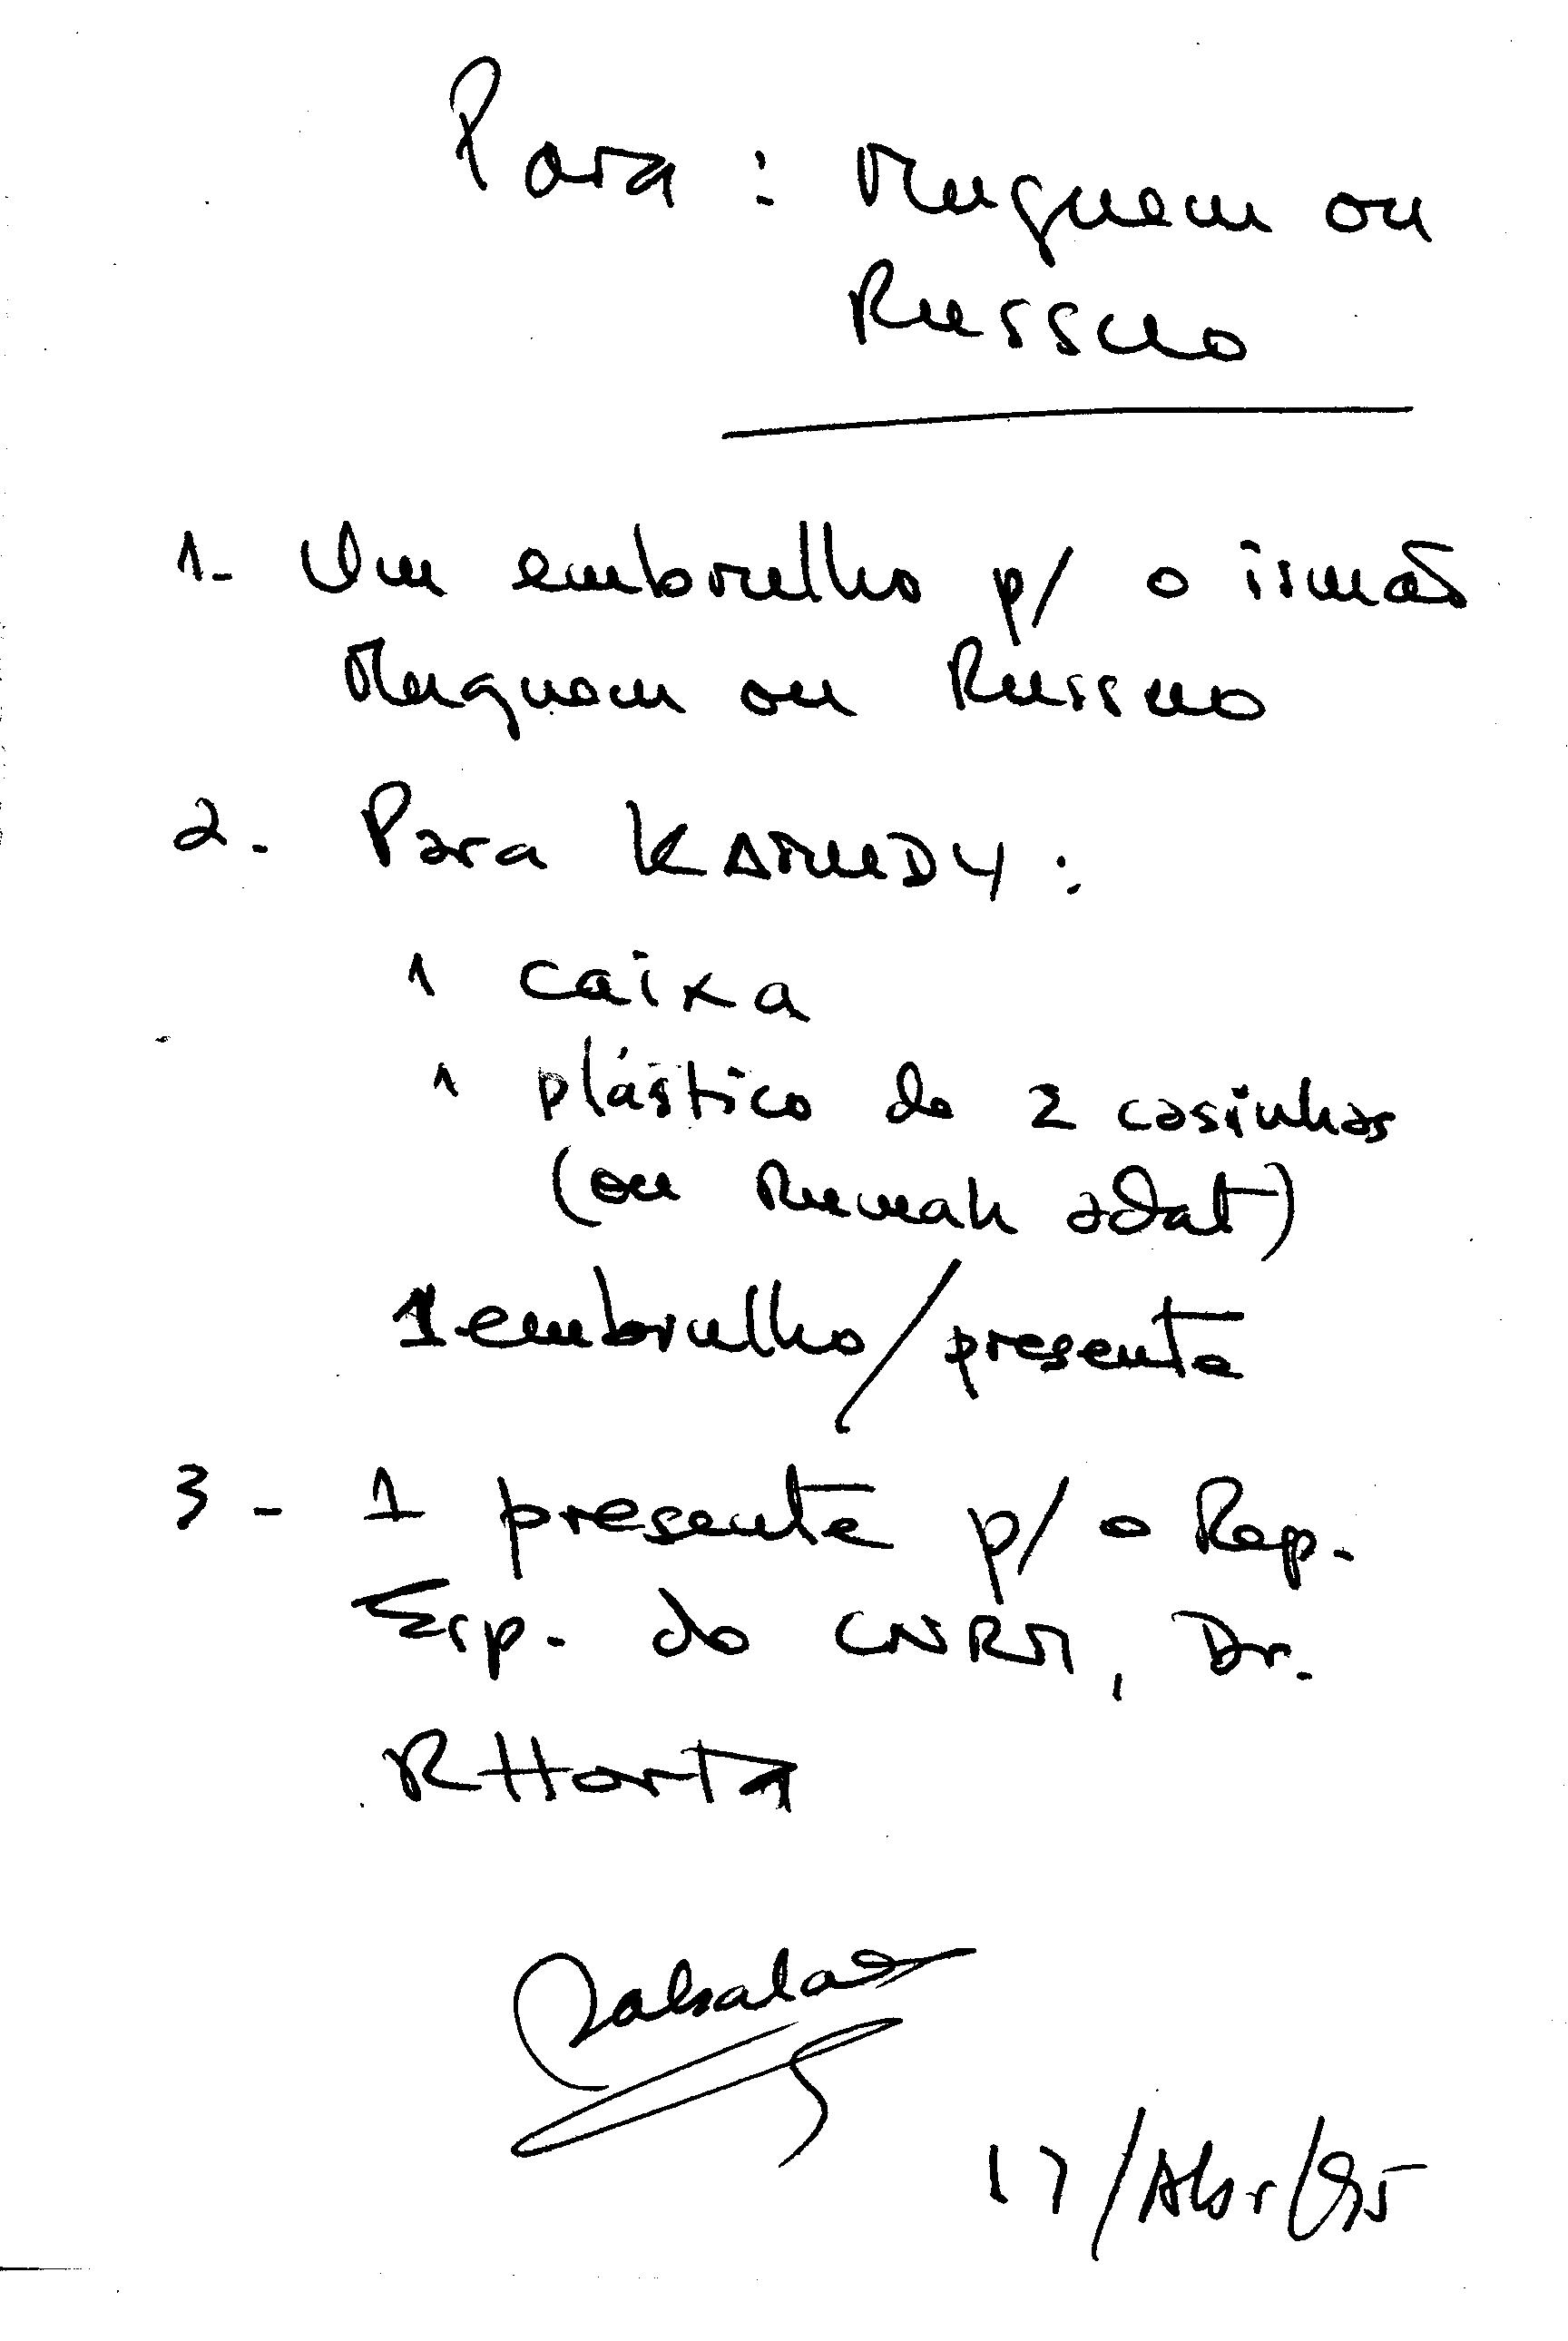 Para : Muquem ou
Russuo
1- Um embrulho p/ o irmão
Muquem ou Russuo
2. Para KAIRUDY :
1 caixa
1 plástico de 2 casinhas
(ou Rumah adat)
1 embrulho/presente
3 - 1 presente p/ o Rep.
Esp. do CNRM, Dr.
RHorta
17/Abr/95